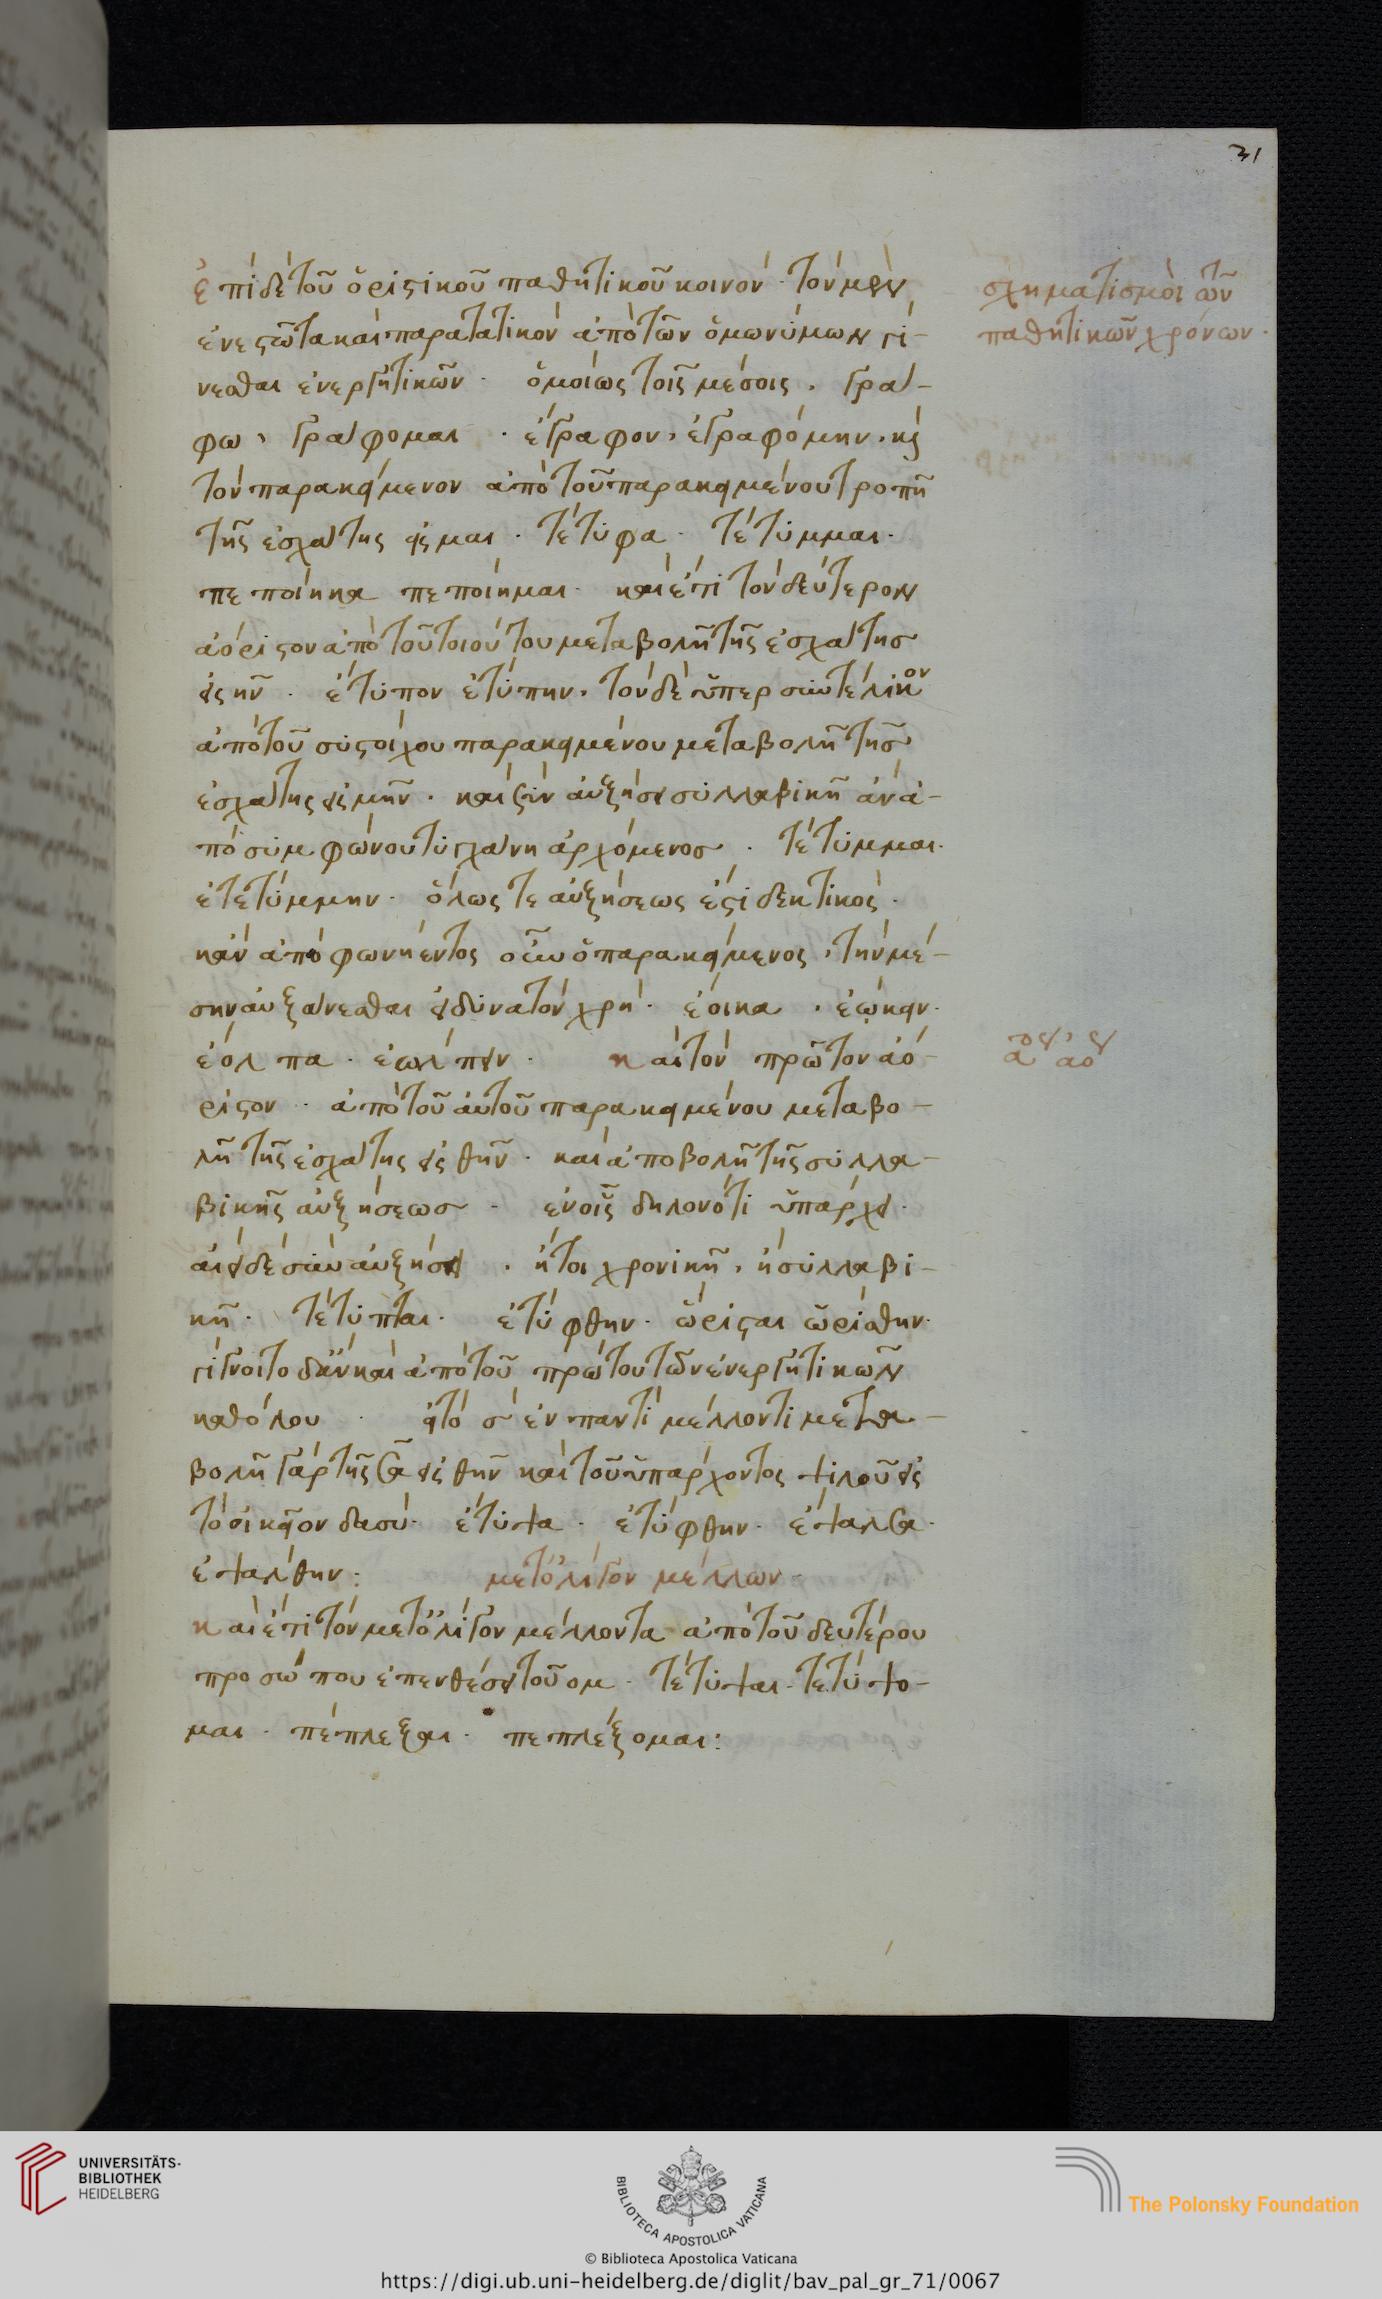 31
ἐπὶ δὲ τοῦ ὁριστικοῦ παθητικοῦ κοινὸν· τὸν μὲν
ἐνεστῶτα καὶ παρατατικὸν ἀπὸ τῶν ὁμωνύμων γί-
νεσθαι ἐνεργητικῶν· ὁμοίως τοῖς μέσοις, γρά-
φω, γράφομαι· ἔγραφον, ἐγραφόμην, καὶ
τὸν παρακείμενον ἀπὸ τοῦ παρακειμένου τροπῇ
τῆς ἐσχάτης εἰς μαι· τέτυφα· τέτυμμαι·
πεποίηκα πεποίημαι· καὶ ἔτι τὸν δεύτερον
ἀόριστον ἀπὸ τοῦ τοιούτου μεταβολῇ τῆς ἐσχάτης
εἰς ην· ἔτυπον ἐτύπην, τὸν δὲ ὑπερσυντέλικον
ἀπὸ τοῦ συστοίχου παρακειμένου μεταβολῇ τῆς
ἐσχάτης εἰς μην· καὶ σὺν αὐξήσει συλλαβικῇ ἂν ἀ-
πὸ συμφώνου τυγχάνῃ ἀρχόμενος· τέτυμμαι·
ἐτετύμμην· ὅλως τε αὐξήσεως ἐστὶ δεκτικὸς·
κἂν ἀπὸ φωνήεντος οὖν ὁ παρακείμενος, τὴν μέ-
σην αὐξάνεσθαι δυνατὸν χρή· ἔοικα, ἐῴκειν·
ἔολπα· ἐώλπειν· καὶ τὸν πρῶτον ἀό-
ριστον· ἀπὸ τοῦ αὐτοῦ παρακειμένου μεταβο-
λῇ τῆς ἐσχάτης εἰς θην· καὶ ἀποβολῇ τῆς συλλα-
βικῆς αὐξήσεως· ἐν οἷς δηλονότι ὑπάρχει·
ἀεὶ δὲ σὺν αὐξήσει· ἤτοι χρονικῇ, ἢ συλλαβι-
κῇ· τέτυπται· ἐτύφθην· ὥρισται ὡρίσθην·
γίγνοιτο δ' ἂν καὶ ἀπὸ τοῦ πρώτου τῶν ἐνεργητικῶν
καθόλου· εἰ τὸ σ ἐν παντὶ μέλλοντι μετα-
βολῇ γὰρ τῆς σα εἰς θην καὶ τοῦ ὑπάρχοντος ψιλοῦ εἰς
τὸ οἰκεῖον δασύ· ἔτυψα· ἐτύφθην· ἔψαλσα·
ἐψάλθην: μετ' ὀλίγον μέλλων
καὶ ἔτι τὸν μετ' ὀλίγον μέλλοντα ἀπὸ τοῦ δευτέρου
προσώπου ἐπενθέσει τοῦ ομ· τέτυψαι· τετύψο-
μαι· πέπλεξαι· πεπλέξομαι:
σχηματισμοὶ τῶν
παθητικῶν χρόνων·
UNIVERSITÄTS-
BIBLIOTHEK
HEIDELBERG
BIBLIOTECA APOSTOLICA VATICANA
© Biblioteca Apostolica Vaticana
The Polonsky Foundation
https://digi.ub.uni-heidelberg.de/diglit/bav_pal_gr_71/0067